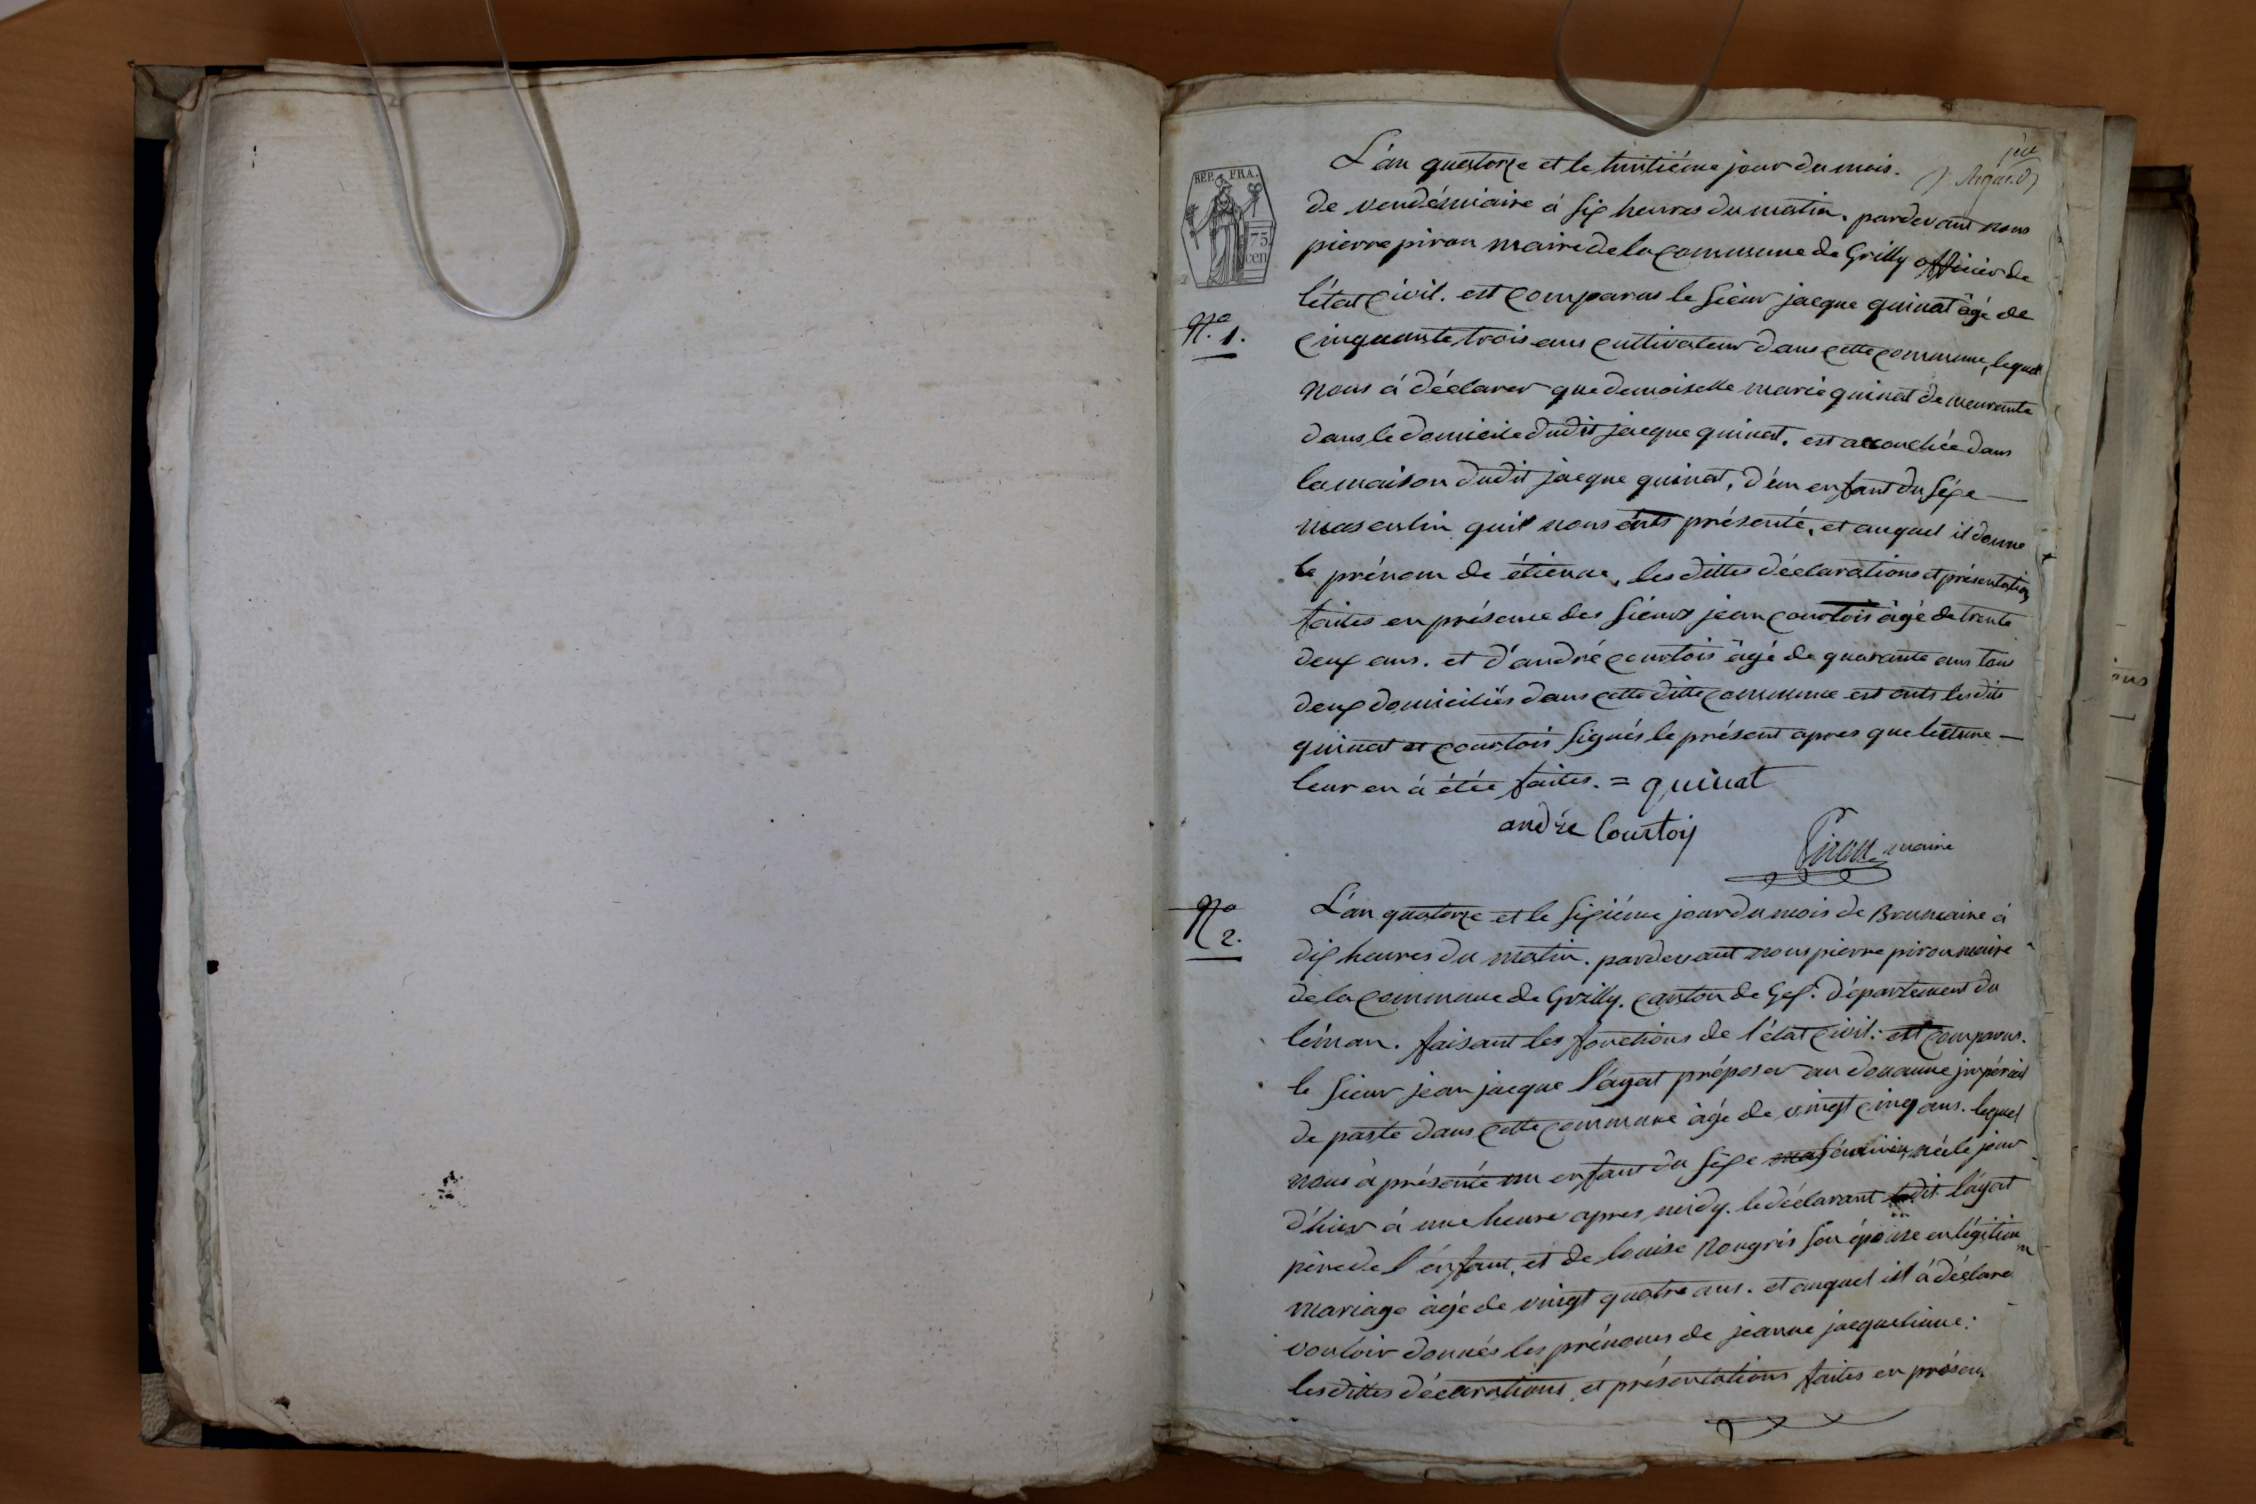 REP. FRA.
75
cen
L'an quatorze et le huitiéme jour du mois.
de vendémiaire à six heures du matin. pardevant nous
pierre piron maire de la commune de Grilly officier de
l'état civil. est comparus le sieur jacque quinat âgé de
N.o 1.
cinquante trois ans cultivateur dans cette commune, lequel
nous à déclarer que demoiselle marie quinat demeurante
dans le domicile dudit jacque quinat. est accouchée dans
la maison dudit jacque quinat, d'un enfant du séxe
masculin quil nous présenté, et auquel il donne
le prénom de étienne, les dittes déclarations et présentation
faites en présence des sieurs jean courtois âgé de trente
deux ans. et d'andré courtois âgé de quarante ans tous
deux domiciliés dans cette ditte commune est onts lesdits
quinat et courtois signés le présent apres que lecture
leur en à étée faites. = quinat
andré Courtois
Piron maire
N.o 2.
L'an quatorze et le sixiéme jour du mois de Brumaire à
dix heures du matin. pardevant nous pierre piron maire
de la commune de Grilly. canton de Gex. département du
léman. faisant les fonctions de l'état civil: est comparus.
le sieur jean jacque l'ayat préposer au douanne impérial
de poste dans cette commune âgé de vingt cinq ans. lequel
nous à présenté un enfant du séxe féminin, née le jour
d'hier à une heure apres midy. le déclarant ledit l'ayat
pere de l'énfant, et de louise Rougris son épouse en légitim
mariage âgé de vingt quatre ans. et auquel ill à déclaré
vouloir donnés les prénoms de jeanne jacqueline:
les dittes déclarations et présentations faites en présen